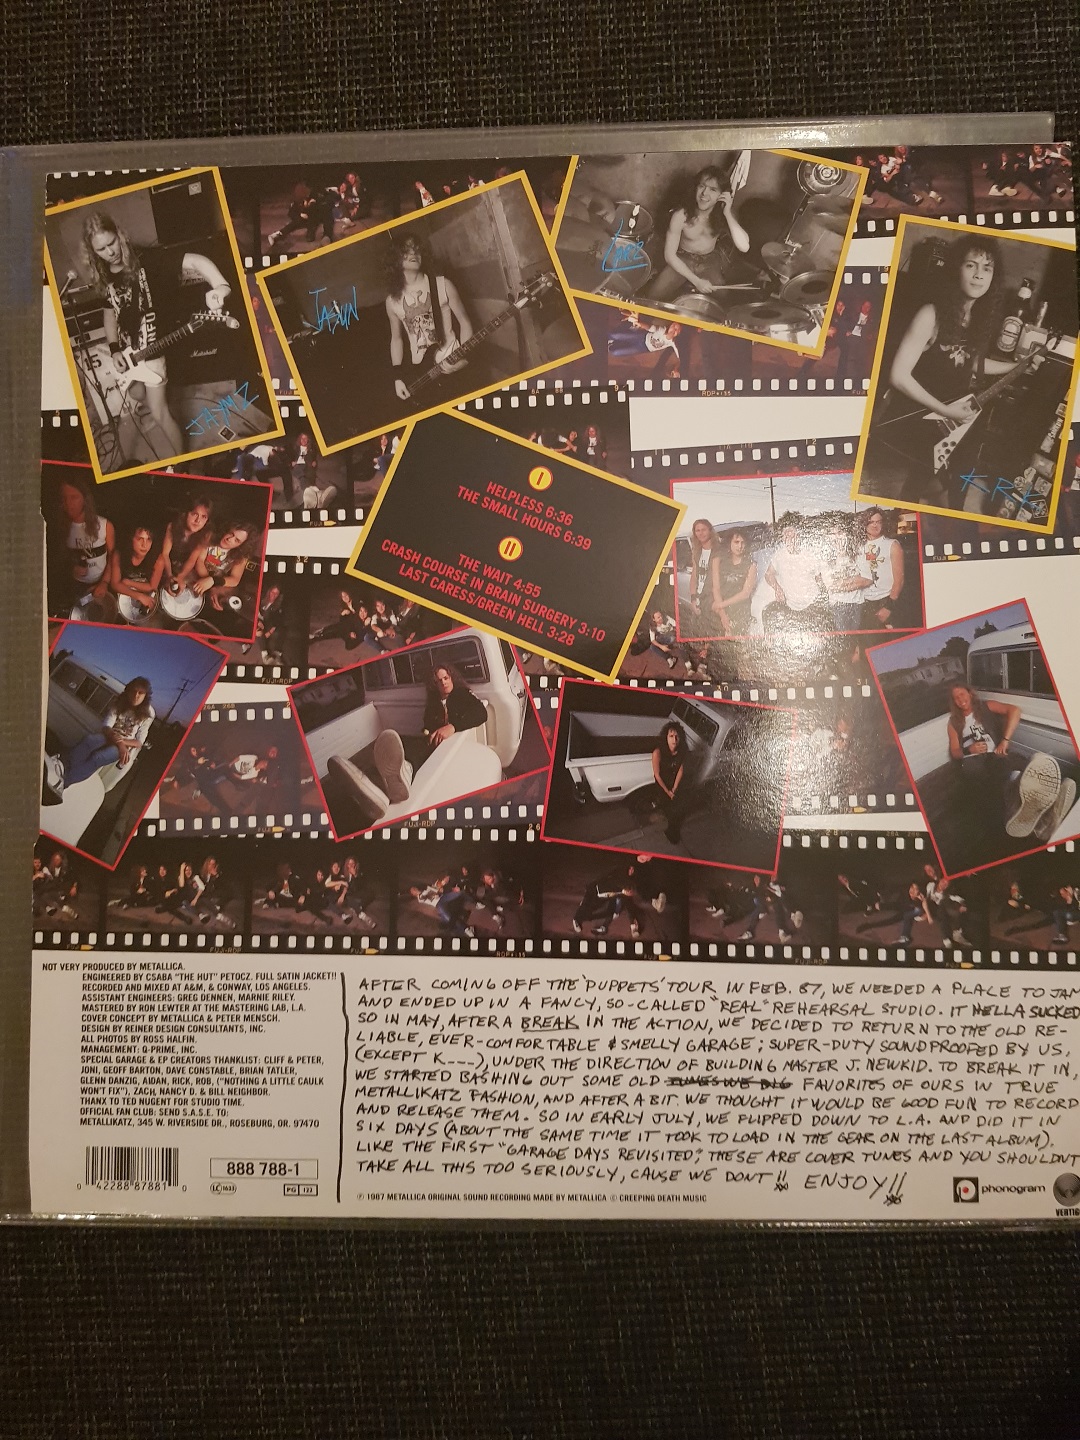 JAYMZ
JASUN
Larz
KRK
INFU
Marshall
15
I
HELPLESS 6:36
THE SMALL HOURS 6:39
II
THE WAIT 4:55
CRASH COURSE IN BRAIN SURGERY 3:10
LAST CARESS/GREEN HELL 3:28
NOT VERY PRODUCED BY METALLICA.
ENGINEERED BY CSABA "THE HUT" PETOCZ. FULL SATIN JACKET!!
RECORDED AND MIXED AT A&M, & CONWAY, LOS ANGELES.
ASSISTANT ENGINEERS: GREG DENNEN, MARNIE RILEY.
MASTERED BY RON LEWTER AT THE MASTERING LAB, L.A.
COVER CONCEPT BY METALLICA & PETER MENSCH.
DESIGN BY REINER DESIGN CONSULTANTS, INC.
ALL PHOTOS BY ROSS HALFIN.
MANAGEMENT: Q-PRIME, INC.
SPECIAL GARAGE & EP CREATORS THANKLIST: CLIFF & PETER,
JONI, GEOFF BARTON, DAVE CONSTABLE, BRIAN TATLER,
GLENN DANZIG, AIDAN, RICK, ROB, ("NOTHING A LITTLE CAULK
WON'T FIX"), ZACH, NANCY D. & BILL NEIGHBOR.
THANX TO TED NUGENT FOR STUDIO TIME.
OFFICIAL FAN CLUB: SEND S.A.S.E. TO:
METALLIKATZ, 345 W. RIVERSIDE DR., ROSEBURG, OR. 97470
0 42288 87881 0
888 788-1
LC 1633
PG 123
AFTER COMING OFF THE 'PUPPETS' TOUR IN FEB. 87, WE NEEDED A PLACE TO JAM
AND ENDED UP IN A FANCY, SO-CALLED "REAL" REHEARSAL STUDIO. IT HELLA SUCKED
SO IN MAY, AFTER A BREAK IN THE ACTION, WE DECIDED TO RETURN TO THE OLD RE-
LIABLE, EVER-COMFORTABLE & SMELLY GARAGE; SUPER-DUTY SOUNDPROOFED BY US,
(EXCEPT K---), UNDER THE DIRECTION OF BUILDING MASTER J. NEWKID. TO BREAK IT IN,
WE STARTED BASHING OUT SOME OLD TUNES WE DIG FAVORITES OF OURS IN TRUE
METALLIKATZ FASHION, AND AFTER A BIT. WE THOUGHT IT WOULD BE GOOD FUN TO RECORD
AND RELEASE THEM. SO IN EARLY JULY, WE FLIPPED DOWN TO L.A. AND DID IT IN
SIX DAYS (ABOUT THE SAME TIME IT TOOK TO LOAD IN THE GEAR ON THE LAST ALBUM).
LIKE THE FIRST "GARAGE DAYS REVISITED", THESE ARE COVER TUNES AND YOU SHOULDNT
TAKE ALL THIS TOO SERIOUSLY, CAUSE WE DONT!! ENJOY!!
℗ 1987 METALLICA ORIGINAL SOUND RECORDING MADE BY METALLICA © CREEPING DEATH MUSIC
phonogram